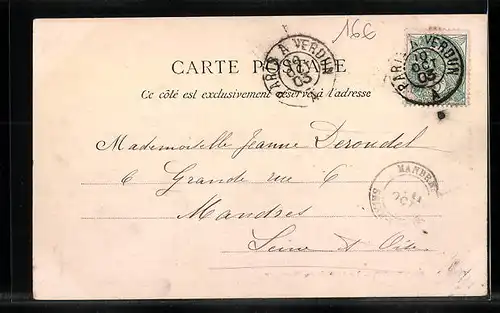 166
PARIS A VERDUN
OCT
03
PARIS A VERDUN
OCT
03
CARTE POSTALE
Ce côté est exclusivement réservé à l'adresse
Mademoiselle Jeanne Deroudel
6 Grande rue 6
Mandres
Seine et Oise
MANDRES
OCT